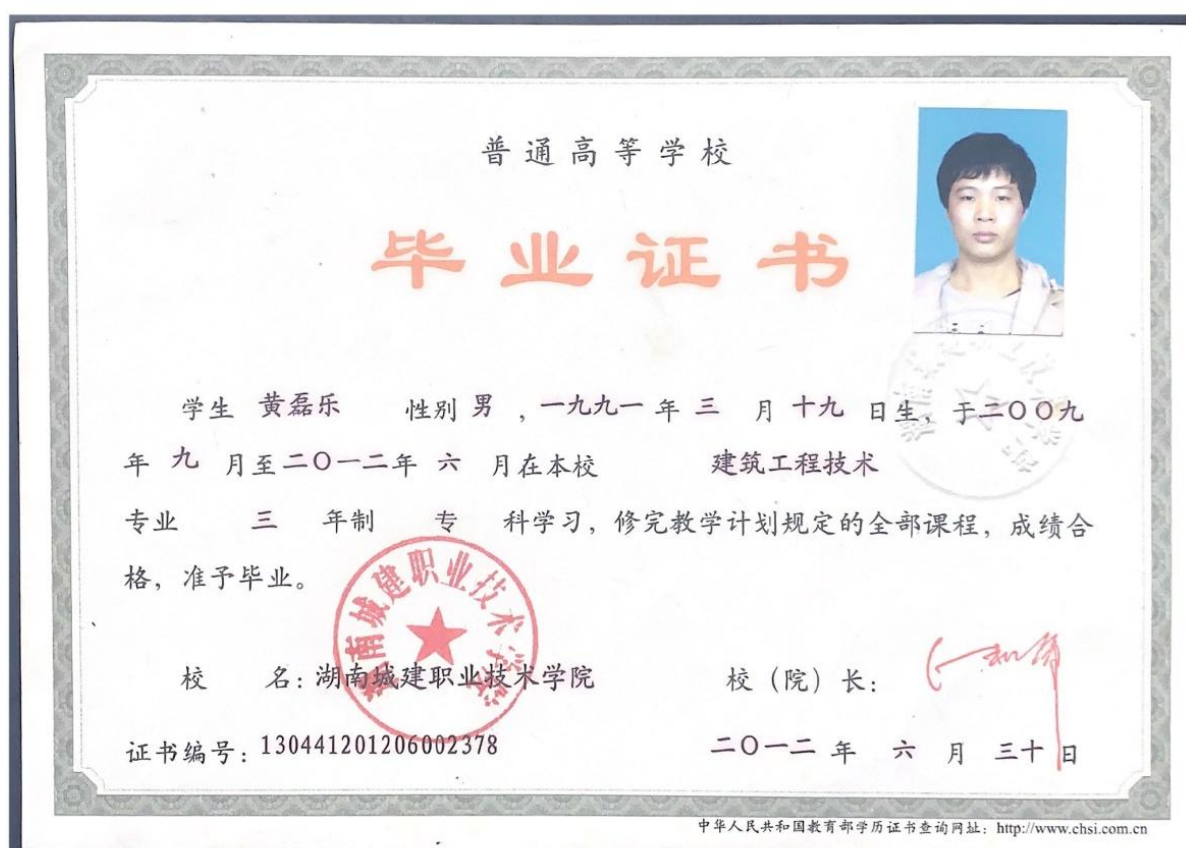 普通高等学校
毕业证书
学生 黄磊乐 性别 男 ，一九九一 年 三 月 十九 日生，于二〇〇九
年 九 月至二〇一二年 六 月在本校 建筑工程技术
专业 三 年制 专 科学习，修完教学计划规定的全部课程，成绩合
格，准予毕业。
湖南城建职业技术学院
校 名：湖南城建职业技术学院 校（院）长：
证书编号：130441201206002378 二〇一二 年 六 月 三十 日
中华人民共和国教育部学历证书查询网址：http://www.chsi.com.cn